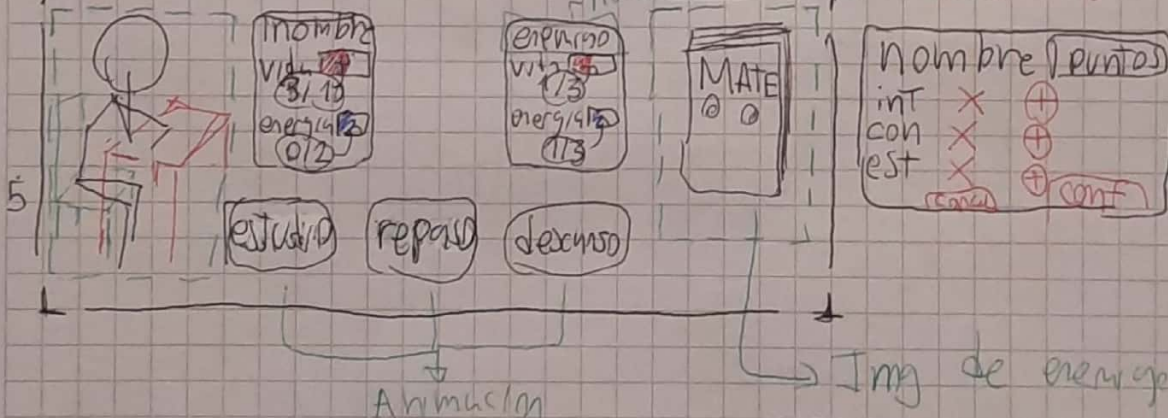 nombre
vida
3/10
energia
0/2
enemigo
vida
1/3
energia
1/3
MATE
nombre puntos
int
con
est
conf
5
estudio repaso descanso
Animación
Img de enemigo